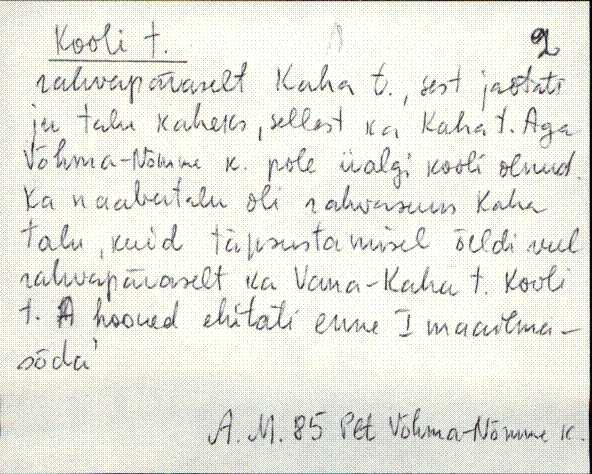 Kooli t. 2
rahvapäraselt Kaha t., sest jaotati
ju talu kaheks, sellest ka Kaha t. Aga
Võhma-Nõmme k. pole iialgi kooli olnud.
Ka naabertalu oli rahvasuus Kaha
talu, kuid täpsustamisel öeldi veel
rahvapäraselt ka Vana-Kaha t. Kooli
t. hooned ehitati enne I maailma-
sõda
A. M. 85 Plt Võhma-Nõmme k.